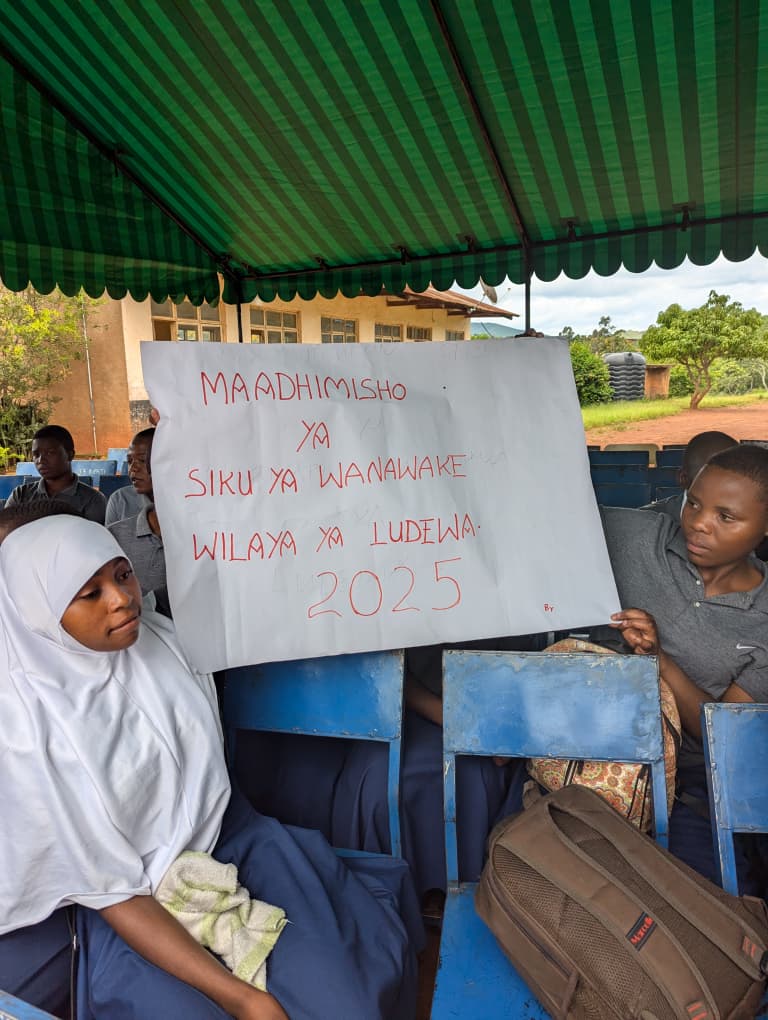 MAADHIMISHO
YA
SIKU YA WANAWAKE
WILAYA YA LUDEWA.
2025
By